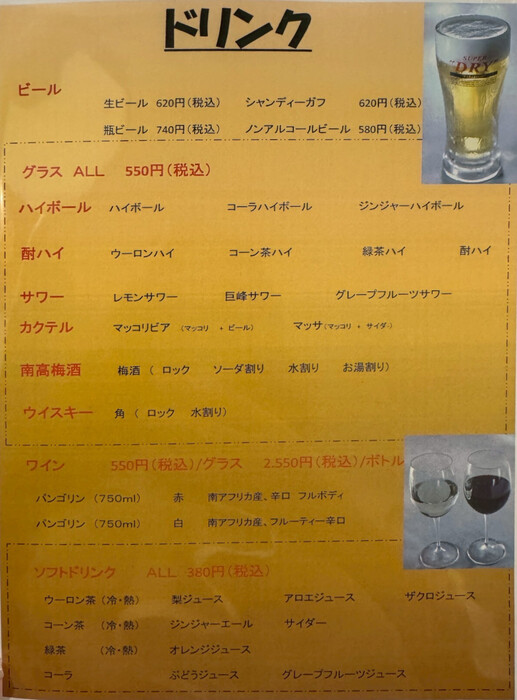 ドリンク
SUPER
"DRY"
ビール
生ビール 620円(税込) シャンディーガフ 620円(税込)
瓶ビール 740円(税込) ノンアルコールビール 580円(税込)
グラス ALL 550円(税込)
ハイボール ハイボール コーラハイボール ジンジャーハイボール
酎ハイ ウーロンハイ コーン茶ハイ 緑茶ハイ 酎ハイ
サワー レモンサワー 巨峰サワー グレープフルーツサワー
カクテル マッコリビア (マッコリ + ビール) マッサ(マッコリ + サイダー)
南高梅酒 梅酒 ( ロック ソーダ割り 水割り お湯割り)
ウイスキー 角 ( ロック 水割り)
ワイン 550円(税込)/グラス 2.550円(税込)/ボトル
パンゴリン (750ml) 赤 南アフリカ産、辛口 フルボディ
パンゴリン (750ml) 白 南アフリカ産、フルーティー辛口
ソフトドリンク ALL 380円(税込)
ウーロン茶 (冷・熱) 梨ジュース アロエジュース ザクロジュース
コーン茶 (冷・熱) ジンジャーエール サイダー
緑茶 (冷・熱) オレンジジュース
コーラ ぶどうジュース グレープフルーツジュース